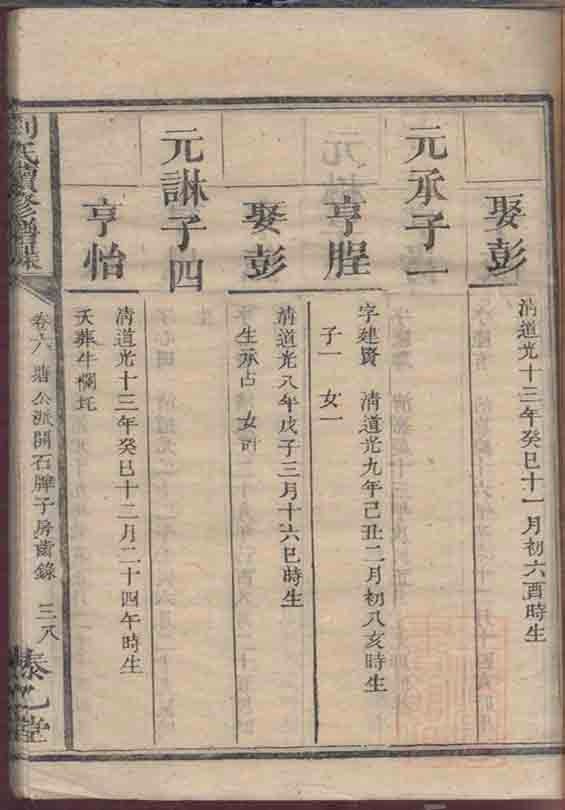 娶彭
清道光十三年癸巳十一月初六酉時生
元承子一
亨腥
字建賢 清道光九年己丑二月初八亥時生
子一 女一
娶彭
清道光八年戊子三月十六巳時生
生承占 女可
元諃子四
亨怡
清道光十三年癸巳十二月二十四午時生
夭葬牛欄圫
劉氏續修譜
卷六 塘公派開石牌子房齒錄 三八
泰
堂